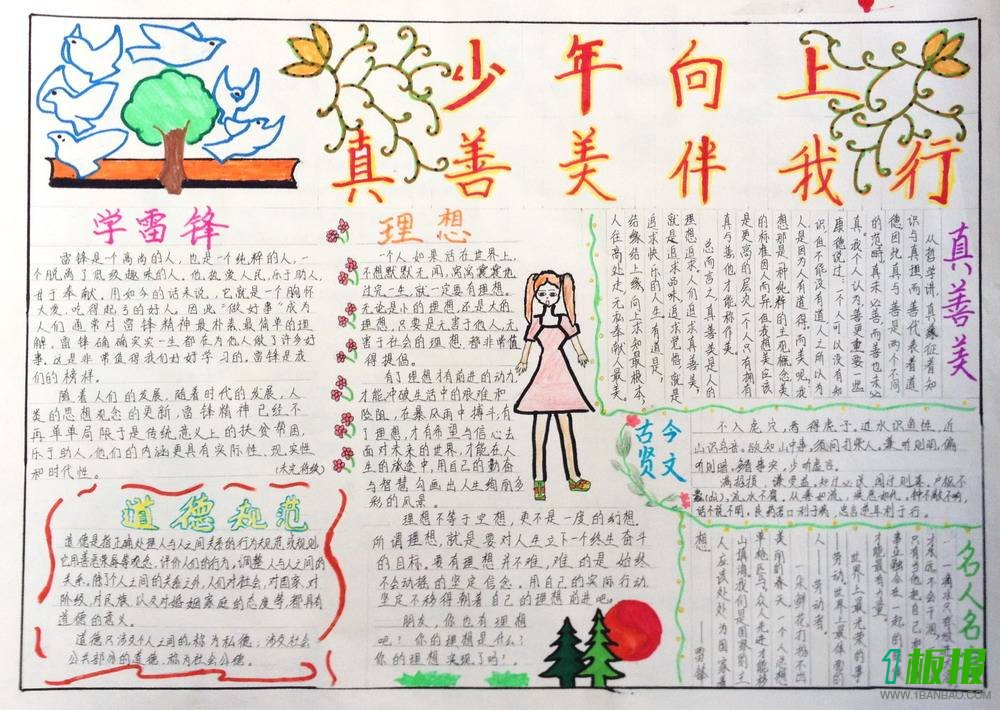 少年向上
真善美伴我行
学雷锋
雷锋是个高尚的人，也是一个纯粹的人，一
个脱离了低级趣味的人。他，热爱人民，乐于助人，
甘于奉献。用如今的话来说，它就是一个胸怀
大爱，吃得起亏的好人。因此“做好事”成为
人们通常对雷锋精神最朴素最简单的理
解。雷锋确确实实一生都在为他人做了许多好
事。这是非常值得我们好好学习的。雷锋是我
们的榜样。
随着人们的发展，随着时代的发展，人
类的思想观念的更新，雷锋精神已经不
再单单局限于是传统意义上的扶贫帮困，
乐于助人，他们的内涵更具有实际性、现实性
和时代性。
道德规范
道德是指正确处理人与人之间关系的行为规范或规则，
它用善恶荣辱等观念，评价人们的行为，调整人与人之间的
关系，除了个人之间的关系之外，人们对社会，对国家，对
阶级，对民族，以及对婚姻家庭的态度等，都具有
道德的意义。
道德只涉及个人之间的，称为私德；涉及社会
公共部分的道德，称为社会公德。
理想
一个人如果活在世界上，
不想默默无闻，窝窝囊囊地
过完一生，就一定要有理想。
无论是小的理想，还是大的
理想，只要是无害于他人，无
害于社会的理想，都非常值
得提倡。
有了理想才有前进的动力，
才能冲破生活中的艰难和
险阻，在暴风雨中搏斗；有
了理想，才有希望与信心去
面对未来的世界，才能在人
生的旅途中，用自己的勤奋
与智慧勾画出人生绚丽多
彩的风景。
理想不等于空想，更不是一度的幻想。
所谓理想，就是要对人生立下一个终生奋斗
的目标。要有理想并不难，难的是始终
不会动摇的坚定信念。用自己的实际行动
坚定不移得朝着自己的理想前进吧。
朋友，你也有理想
吧？你的理想是什么？
你的理想实现了吗？
真善美
从哲学讲，真象征着知
识与真理，而善代表着道
德，因此真与善是两个不同
的范畴，真未必善，而善也未必
真，我个人认为善更重要一些。
康德说过：一个人可以没有知
识，但不能没有道德，人之所以为
人是因为人有道得，而美呢，我
想那是一种纯粹的主观概念，美
的标准因人而异，但我想美应该
是更高的层次，一个人只有拥有
真与善，他才能称作美。
总而言之，真善美是人的
理想追求，人们追求真善美，
就是追求品味，追求觉悟，就是
追求快乐的人生，有道是，
结缘结上缘，向上求知最根本，
人往高处走，无私奉献人最美。
古今贤文
不入虎穴，焉得虎子，近水识鱼性，近
山识鸟音。欲知山中事，须问打柴人。兼听则明，偏
名人名
一滴水只有
才永远不会干涸，一
只有当他把自己和
事业融合在一起的
才能最有力量。
世界上最光荣的事
——劳动，世界上最体面的
人——劳动者。
一朵鲜花打扮不出
美丽的春天，一个人先进
单枪匹马，众人先进才能移
山填海，我们是国家的主
人，应该处处为国家着
想。——雷锋
1板报
WWW.1BANBAO.COM